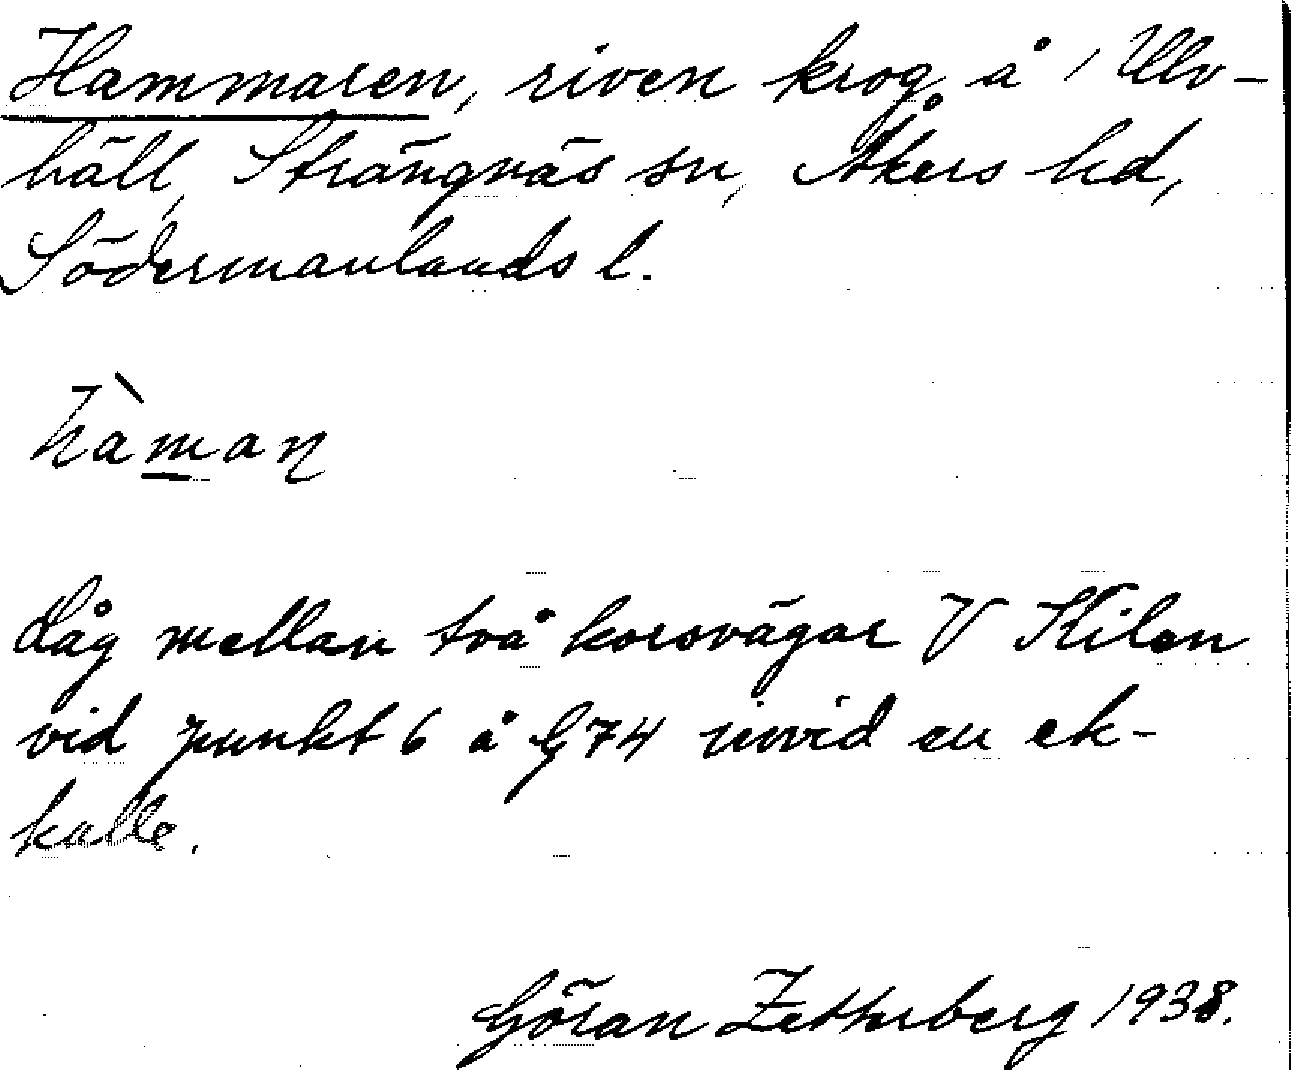 Hammaren, riven krog å 1 Ulv-
häll, Strängnäs sn, Åkers hd,
Södermanlands l.
hàman
Låg mellan två korsvägar V Kilen
vid punkt 6 å G74 invid en ek-
kalle.
Göran Zetterberg 1938.